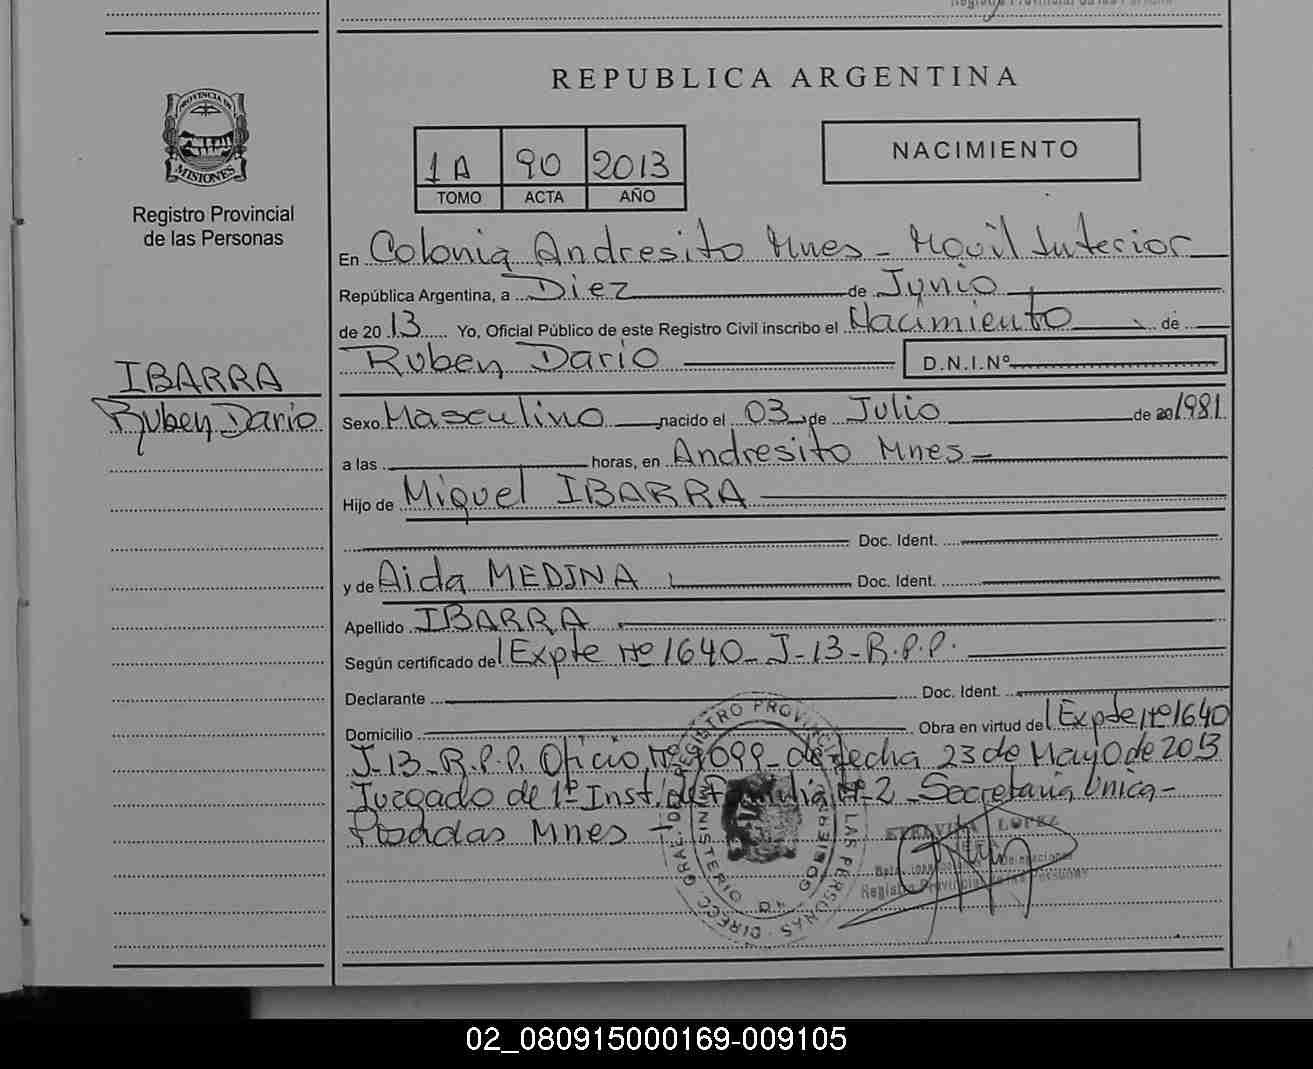 REPUBLICA ARGENTINA
PROVINCIA DE
MISIONES
Registro Provincial
de las Personas
1A 90 2013
TOMO ACTA AÑO
NACIMIENTO
En Colonia Andresito Mnes - Movil Interior
República Argentina, a Diez de Junio
de 2013 Yo, Oficial Público de este Registro Civil inscribo el Nacimiento de
Ruben Dario D.N.I.Nº
IBARRA
Ruben Dario
Sexo Masculino nacido el 03 de Julio de 20 1981
a las horas, en Andresito Mnes -
Hijo de Miguel IBARRA
Doc. Ident.
y de Aida MEDINA Doc. Ident.
Apellido IBARRA
Según certificado del Expte Nº 1640 - J-13-R.P.P.
Declarante Doc. Ident.
Domicilio Obra en virtud del Expte Nº 1640
J-13-R.P.P. Oficio Nº 1099 - de fecha 23 de Mayo de 2013
Juzgado de 1º Inst. de Familia Nº 2 - Secretaria Unica -
Posadas Mnes -
DIRECC. GRAL. DE REGISTRO PROVINCIAL DE LAS PERSONAS
MINISTERIO DE GOBIERNO
LOPEZ
Registro Provincial de las Personas
02_080915000169-009105